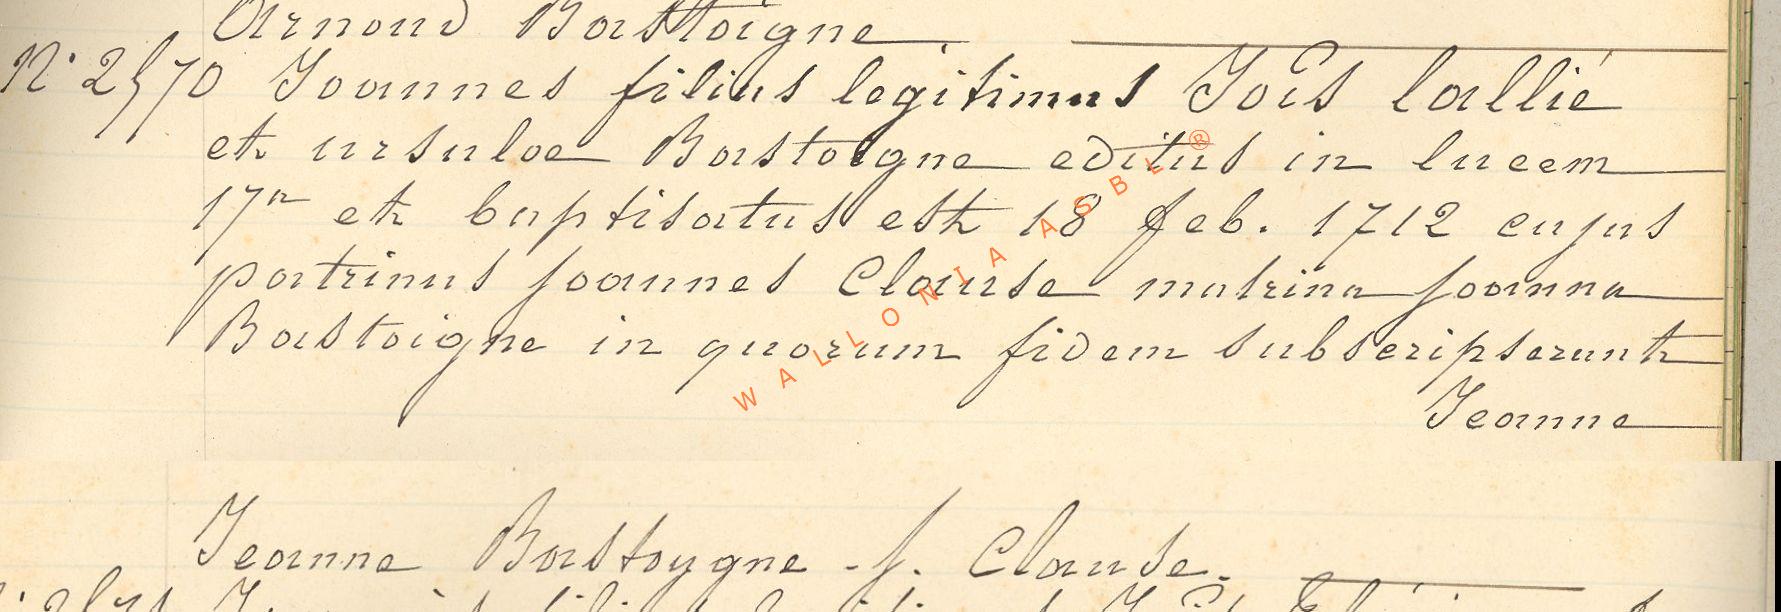 Arnoud Bastoigne
N° 2570 Joannes filius legitimus Jois lallié
et ursulae Bastoigne editus in lucem
17a et baptisatus est 18 feb. 1712 cujus
patrinus joannes Clause matrina joanna
Bastoigne in quorum fidem subscripserunt
Jeanne
Jeanne Bastoygne - j. Clause.
WALLONIA ASBL ®